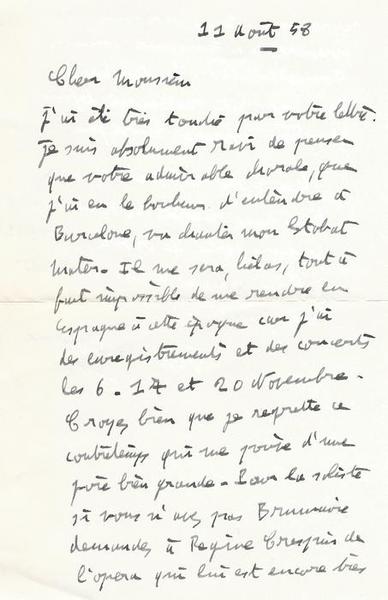 11 Août 58
Cher Monsieur
J'ai été très touché par votre lettre.
Je suis absolument ravi de penser
que votre admirable chorale, que
j'ai eu le bonheur d'entendre à
Barcelone, va chanter mon Stabat
Mater. Il me sera, hélas, tout à
fait impossible de me rendre en
Espagne à cette époque car j'ai
des enregistrements et des concerts
les 6. 14 et 20 Novembre.
Croyez bien que je regrette ce
contretemps qui me prive d'une
joie bien grande. Pour la soliste
si vous n'avez pas Brumaire
demandez à Régine Crespin de
l'opera qui lui est encore très